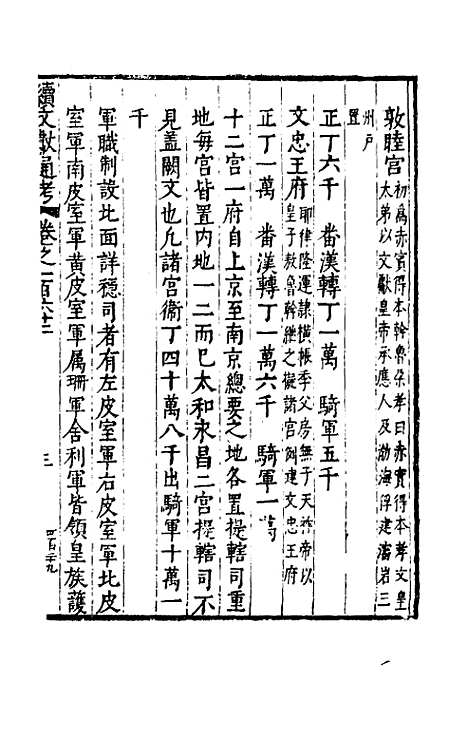 敦睦宮初爲赤實得本斡魯朶孝曰赤實得本孝文皇
太弟以文獻皇帝承應人及渤海俘建瀋岩三
州戶
置
正丁六千　番漢轉丁一萬　騎軍五千
文忠王府耶律隆運隷橫帳季父房無子天祚帝以
皇子敖魯斡繼之擬諸宮例建文忠王府
正丁一萬　番漢轉丁一萬六千　騎軍一萬
十二宮一府自上京至南京總要之地各置提轄司重
地每宮皆置内地一二而已太和永昌二宮提轄司不
見盖闕文也凡諸宮衛丁四十萬八千出騎軍十萬一
千
軍職制設北面詳穩司者有左皮室軍右皮室軍北皮
室軍南皮室軍黃皮室軍属珊軍舍利軍皆領皇族護
續文獻通考　卷之一百六十二　三　四百三十九